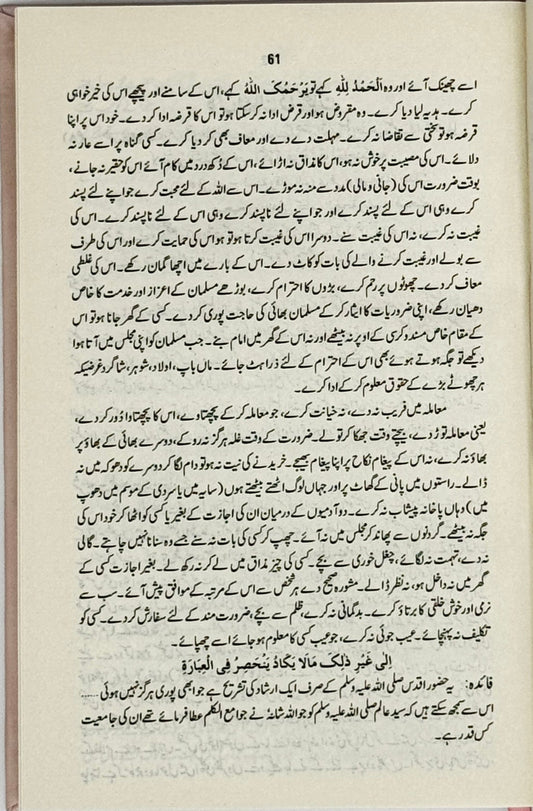 61
اسے چھینک آئے اور وہ اَلْحَمْدُ لِلّٰهِ کہے تو یَرْحَمُکَ اللّٰهُ کہے، اس کے سامنے اور پیچھے اس کی خیرخواہی
کرے۔ ہدیہ لیا دیا کرے۔ وہ مقروض ہو اور قرض ادا نہ کر سکتا ہو تو اس کا قرضہ ادا کر دے۔ خود اس پر اپنا
قرضہ ہو تو سختی سے تقاضا نہ کرے۔ مہلت دے دے اور معاف بھی کر دیا کرے۔ کسی گناہ پر اسے عار نہ
دلائے۔ اس کی مصیبت پر خوش نہ ہو، اس کا مذاق نہ اڑائے، اس کے دُکھ درد میں کام آئے اس کو حقیر نہ جانے،
بوقت ضرورت اس کی (جانی و مالی) مدد سے منہ نہ موڑے۔ اس سے اللہ کے لئے محبت کرے جو اپنے لئے پسند
کرے وہی اس کے لئے پسند کرے اور جو اپنے لئے ناپسند کرے وہی اس کے لئے ناپسند کرے۔ اس کی
غیبت نہ کرے، نہ اس کی غیبت سنے۔ دوسرا اس کی غیبت کرتا ہو تو ہو اس کی حمایت کرے اور اس کی طرف
سے بولے اور غیبت کرنے والے کی بات کو کاٹ دے۔ اس کے بارے میں اچھا گمان رکھے۔ اس کی غلطی
معاف کر دے۔ چھوٹوں پر رحم کرے، بڑوں کا احترام کرے، بوڑھے مسلمان کے اعزاز اور خدمت کا خاص
دھیان رکھے، اپنی ضروریات کا ایثار کر کے مسلمان بھائی کی حاجت پوری کر دے۔ کسی کے گھر جانا ہو تو اس
کے مقام خاص مسند و کرسی کے اوپر نہ بیٹھے اور نہ اس کے گھر میں امام بنے۔ جب مسلمان کو اپنی مجلس میں آتا ہوا
دیکھے تو جگہ ہوتے ہوئے بھی اس کے احترام کے لئے ذرا ہٹ جائے۔ ماں باپ، اولاد، شوہر، شاگرد غرضیکہ
ہر چھوٹے بڑے کے حقوق معلوم کر کے ادا کرے۔
معاملہ میں فریب نہ دے، نہ خیانت کرے، جو معاملہ کر کے پچھتاوے، اس کا پچھتاوا دُور کر دے،
یعنی معاملہ توڑ دے، بیچتے وقت جھکا کر تولے۔ ضرورت کے وقت غلہ ہرگز نہ روکے، دوسرے بھائی کے بھاؤ پر
بھاؤ نہ کرے، نہ اس کے پیغام نکاح پر اپنا پیغام بھیجے۔ خریدنے کی نیت نہ ہو تو دام لگا کر دوسرے کو دھوکہ میں نہ
ڈالے۔ راستوں میں پانی کے گھاٹ پر اور جہاں لوگ اٹھتے بیٹھتے ہوں (سایہ میں یا سردی کے موسم میں دھوپ
میں) وہاں پاخانہ پیشاب نہ کرے۔ دو آدمیوں کے درمیان ان کی اجازت کے بغیر یا کسی کو اٹھا کر خود اس کی
جگہ نہ بیٹھے۔ گردنوں سے پھاند کر مجلس میں نہ آئے۔ چھپ کر کسی کی بات نہ سنے جسے وہ سنانا نہیں چاہتے۔ گالی
نہ دے، تہمت نہ لگائے، چغل خوری سے بچے۔ کسی کی چیز مذاق میں لے کر نہ رکھ لے۔ بغیر اجازت کسی کے
گھر میں نہ داخل ہو، نہ نظر ڈالے۔ مشورہ صحیح دے ہر شخص سے اس کے مرتبہ کے موافق پیش آئے۔ سب سے
نرمی اور خوش خلقی کا برتاؤ کرے۔ بدگمانی نہ کرے، ظلم سے بچے، ضرورت مند کے لئے سفارش کر دے۔ کسی کو
تکلیف نہ پہنچائے۔ عیب جوئی نہ کرے، جو عیب کسی کا معلوم ہو جائے اسے چھپائے۔
اِلٰی غَیْرِ ذٰلِکَ مَالَا یَکَادُ یَنْحَصِرُ فِی الْعِبَارَةِ
فائدہ: یہ حضور اقدس صلی اللہ علیہ وسلم کے صرف ایک ارشاد کی تشریح ہے جو ابھی پوری ہرگز نہیں ہوئی ......
اس سے سمجھ سکتے ہیں کہ سید عالم صلی اللہ علیہ وسلم کو جو اللہ شانہٗ نے جوامع الکلم عطا فرمائے تھے ان کی جامعیت
کس قدر ہے۔